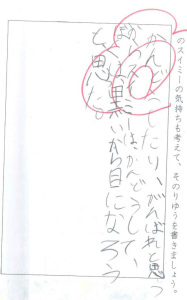 のスイミーの気持ちも考えて、そのりゆうを書きましょう。
かんどうしたり、がんばれと思う
スイミーは、かんどうして、
ぼくは黒いから目になろう
と、思